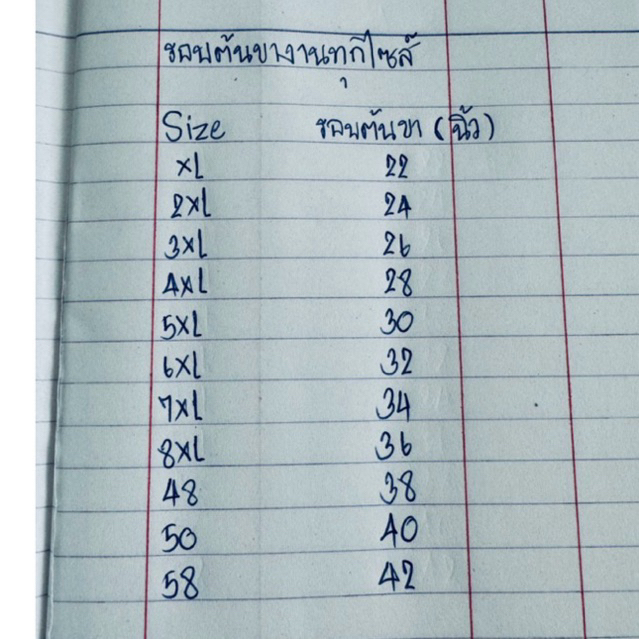 รอบต้นขางานทุกไซส์
Size รอบต้นขา (นิ้ว)
XL 22
2XL 24
3XL 26
4XL 28
5XL 30
6XL 32
7XL 34
8XL 36
48 38
50 40
58 42